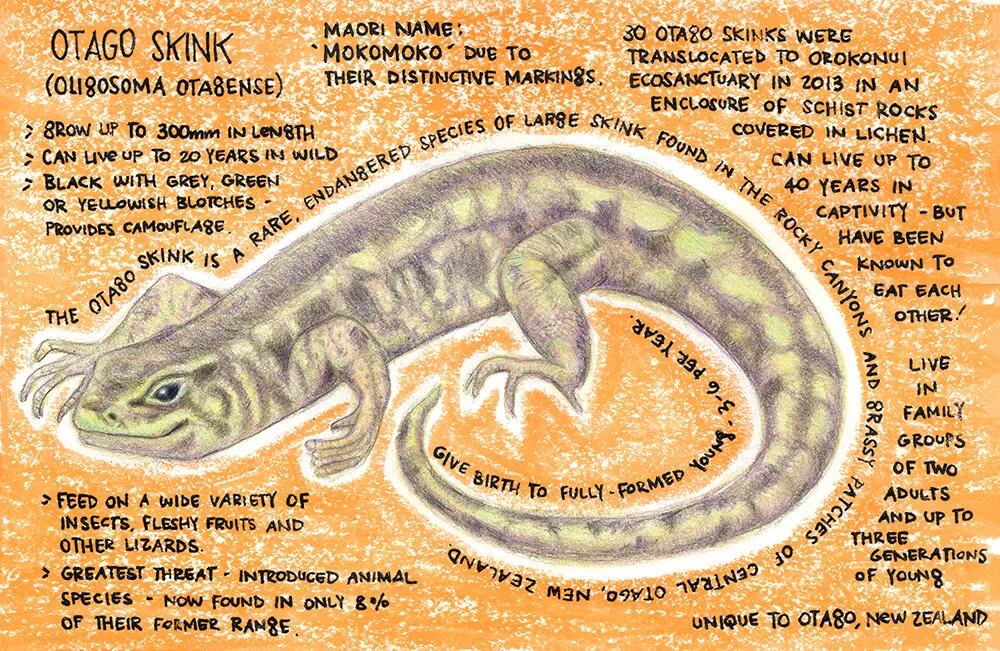 OTAGO SKINK
(OLIGOSOMA OTAGENSE)
> GROW UP TO 300mm IN LENGTH
> CAN LIVE UP TO 20 YEARS IN WILD
> BLACK WITH GREY, GREEN
OR YELLOWISH BLOTCHES -
PROVIDES CAMOUFLAGE.
MAORI NAME:
'MOKOMOKO' DUE TO
THEIR DISTINCTIVE MARKINGS.
30 OTAGO SKINKS WERE
TRANSLOCATED TO OROKONUI
ECOSANCTUARY IN 2013 IN AN
ENCLOSURE OF SCHIST ROCKS
COVERED IN LICHEN.
CAN LIVE UP TO
40 YEARS IN
CAPTIVITY - BUT
HAVE BEEN
KNOWN TO
EAT EACH
OTHER!
LIVE
IN
FAMILY
GROUPS
OF TWO
ADULTS
AND UP TO
THREE
GENERATIONS
OF YOUNG
THE OTAGO SKINK IS A RARE, ENDANGERED SPECIES OF LARGE SKINK FOUND IN THE ROCKY CANYONS AND GRASSY PATCHES OF CENTRAL OTAGO, NEW ZEALAND
GIVE BIRTH TO FULLY-FORMED YOUNG, 3-6 PER YEAR.
> FEED ON A WIDE VARIETY OF
INSECTS, FLESHY FRUITS AND
OTHER LIZARDS.
> GREATEST THREAT - INTRODUCED ANIMAL
SPECIES - NOW FOUND IN ONLY 8%
OF THEIR FORMER RANGE.
UNIQUE TO OTAGO, NEW ZEALAND